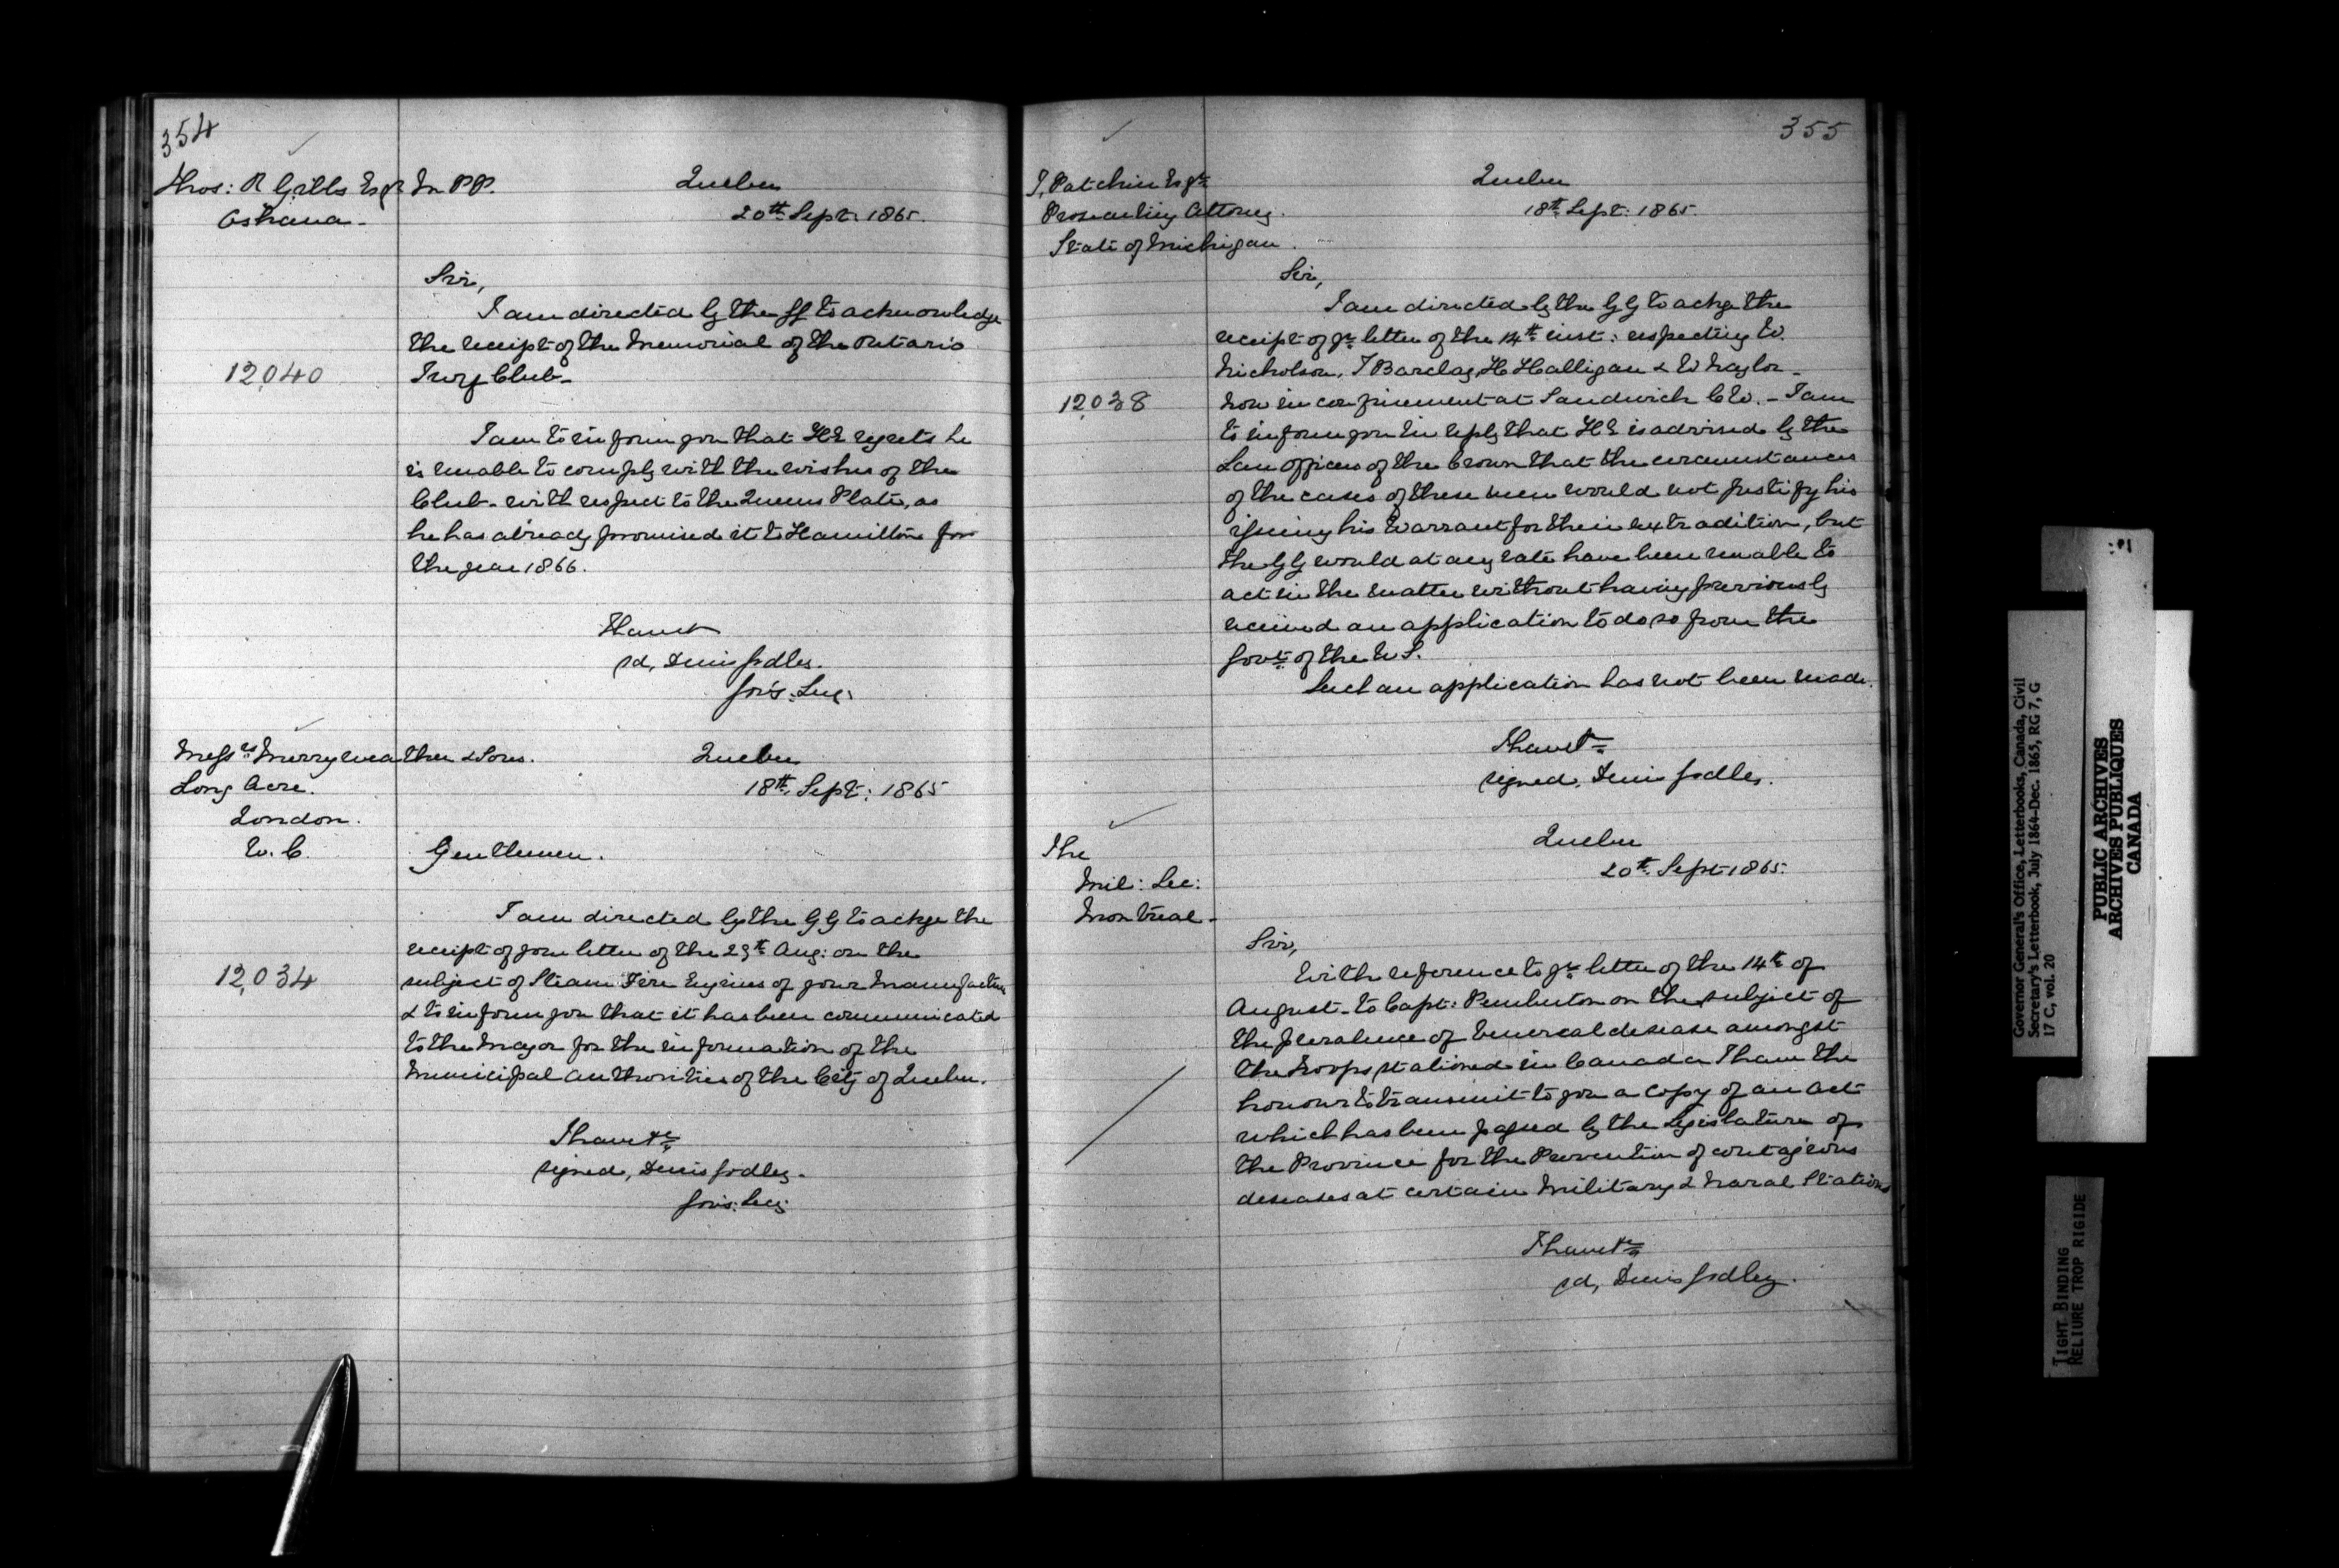 354
Thos: R Gibbs Esqr M.P.P.
Oshawa
Quebec
20th Sept: 1865.
Sir,
I am directed by the GG to acknowledge
the receipt of the Memorial of the Ontario
12,040
Turf Club
I am to inform you that H E regrets he
is unable to comply with the wishes of the
Club with respect to the Queens Plate, as
he has already promised it to Hamilton for
the year 1866.
I have &
sd, Denis Godley.
Gov's: Secy.
Messrs Merryweather & Sons.
Long Acre.
London.
W. C.
Quebec
18th Sept: 1865
Gentlemen.
I am directed by the G G to ackge the
receipt of your letter of the 29th Aug: on the
12,034
subject of Steam Fire Engines of your Manufacture
& to inform you that it has been communicated
to the Mayor for the information of the
Municipal Authorities of the City of Quebec.
I have &c
signed, Denis Godley.
Gov's: Secy
355
T, Patchin Esqre
Prosecuting Attorney.
State of Michigan.
Quebec
18th Sept: 1865.
Sir,
I am directed by the G G to ackge the
receipt of yr letter of the 14th inst: respecting W.
Nicholson, T Barclay, H Halligan & W Naylor
12,038
now in confinement at Sandwich C W. - I am
to inform you in reply that H E is advised by the
Law officers of the Crown that the circumstances
of the cases of these men would not justify his
issuing his Warrant for their extradition, but
the G G would at any rate have been unable to
act in the matter without having previously
received an application to do so from the
Govt. of the U S.
Such an application has not been made.
I have &c
signed, Denis Godley.
The
Mil: Sec:
Montreal -
Quebec
20th Sept 1865.
Sir,
With reference to yr letter of the 14th of
August to Capt: Pemberton on the subject of
the prevalence of Venereal desease amongst
the troops stationed in Canada I have the
honour to transmit to you a copy of an act
which has been passed by the Legislature of
the Province for the Prevention of contagious
deseases at certain Military & Naval Stations
I have &c
sd, Denis Godley.
Governor General's Office, Letterbooks, Canada, Civil
Secretary's Letterbook, July 1864-Dec. 1865, RG 7, G
17 C, vol. 20
PUBLIC ARCHIVES
ARCHIVES PUBLIQUES
CANADA
TIGHT BINDING
RELIURE TROP RIGIDE